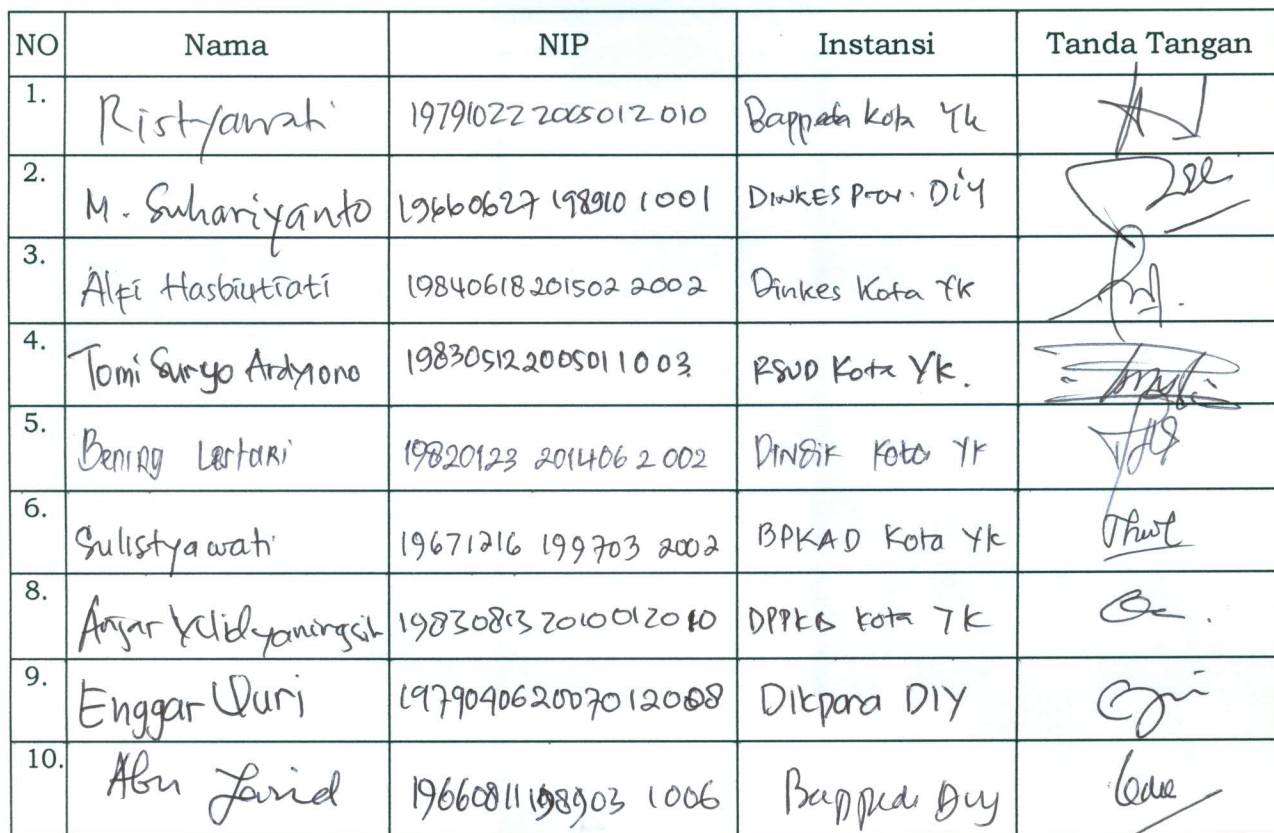 NO Nama NIP Instansi Tanda Tangan
1. Ristyawati 19791022 2005012 010 Bappeda Kota Yk
2. M. Suhariyanto 19660627 198910 1001 DINKES Prov. DIY
3. Alfi Hasbiutiati 19840618 201502 2002 Dinkes Kota Yk
4. Tomi Suryo Ardyiono 19830512 200501 1 003 RSUD Kota Yk.
5. Bening Lestari 19820123 201406 2 002 DINDIK Kota YK
6. Sulistyawati 19671216 199703 2002 BPKAD Kota Yk
8. Anjar Kota YK
9. Enggar 197904062007012008 Dikpora DIY
10. Abu 19660811 198903 1006 Bappeda Diy